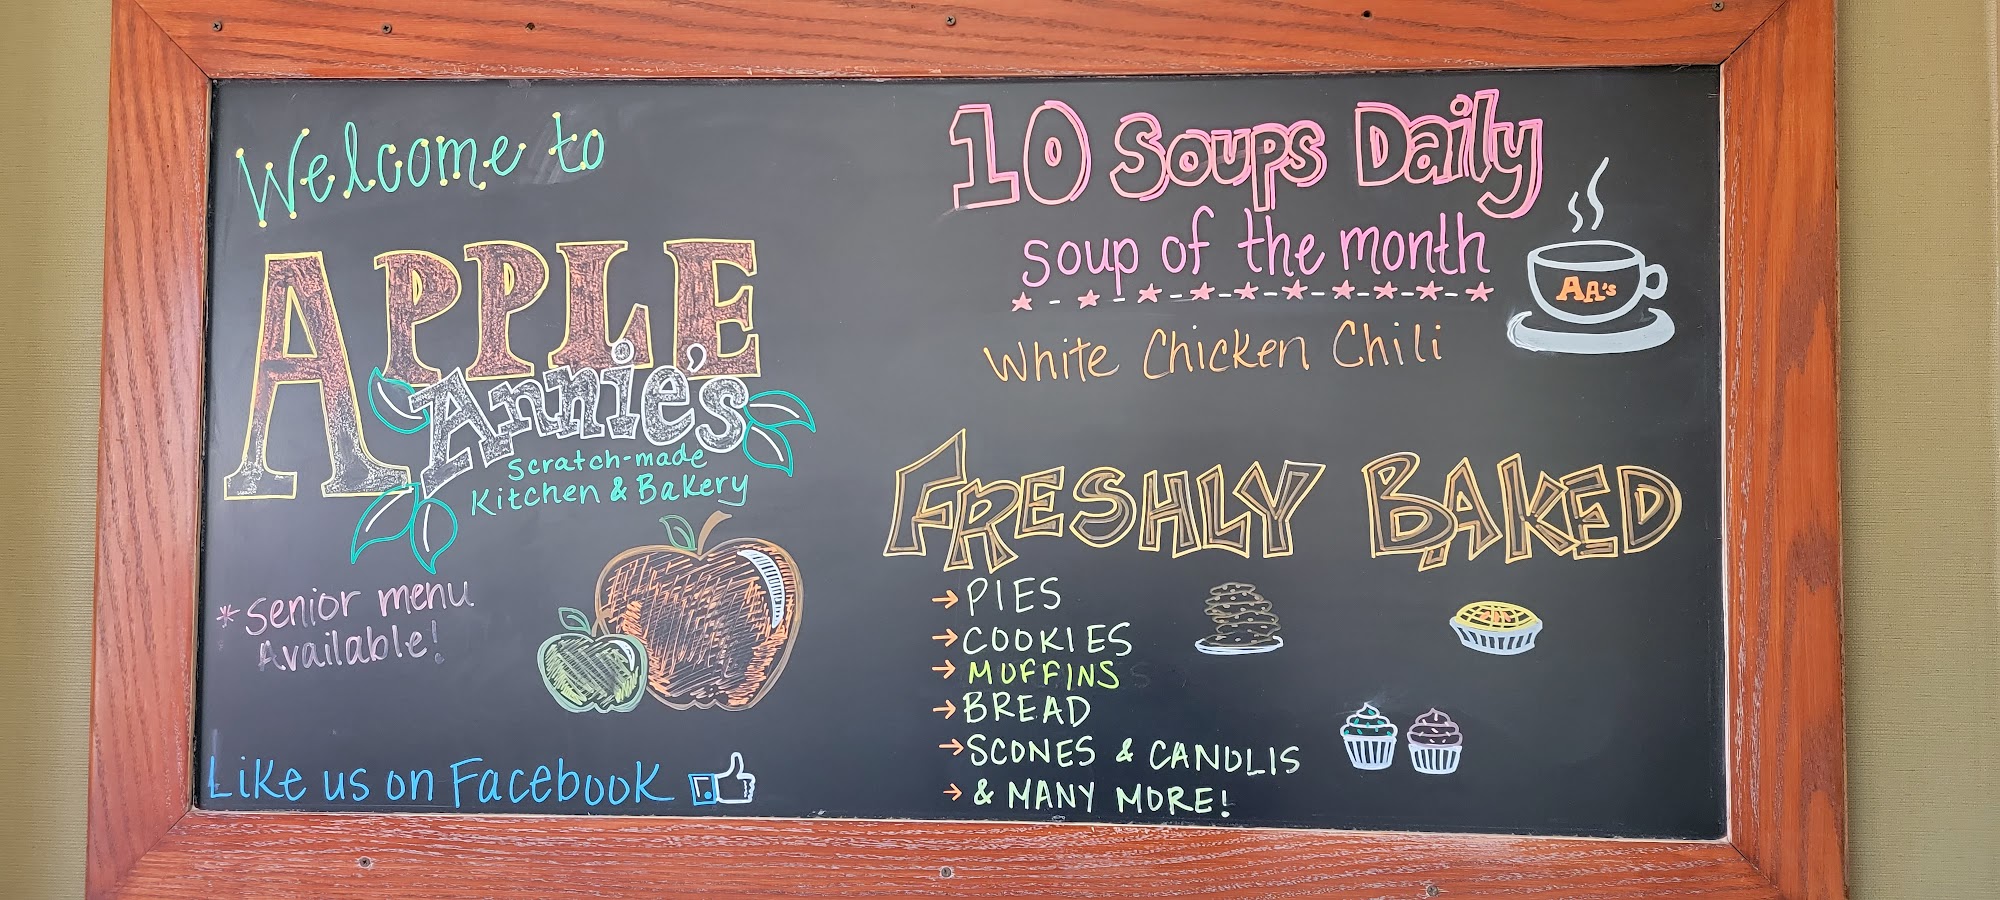 Welcome to
APPLE
Annie's
Scratch-made
Kitchen & Bakery
*Senior menu
Available!
Like us on Facebook
10 Soups Daily
soup of the month
White Chicken Chili
AA's
FRESHLY BAKED
→ PIES
→ COOKIES
→ MUFFINS
→ BREAD
→ SCONES & CANOLIS
→ & MANY MORE!